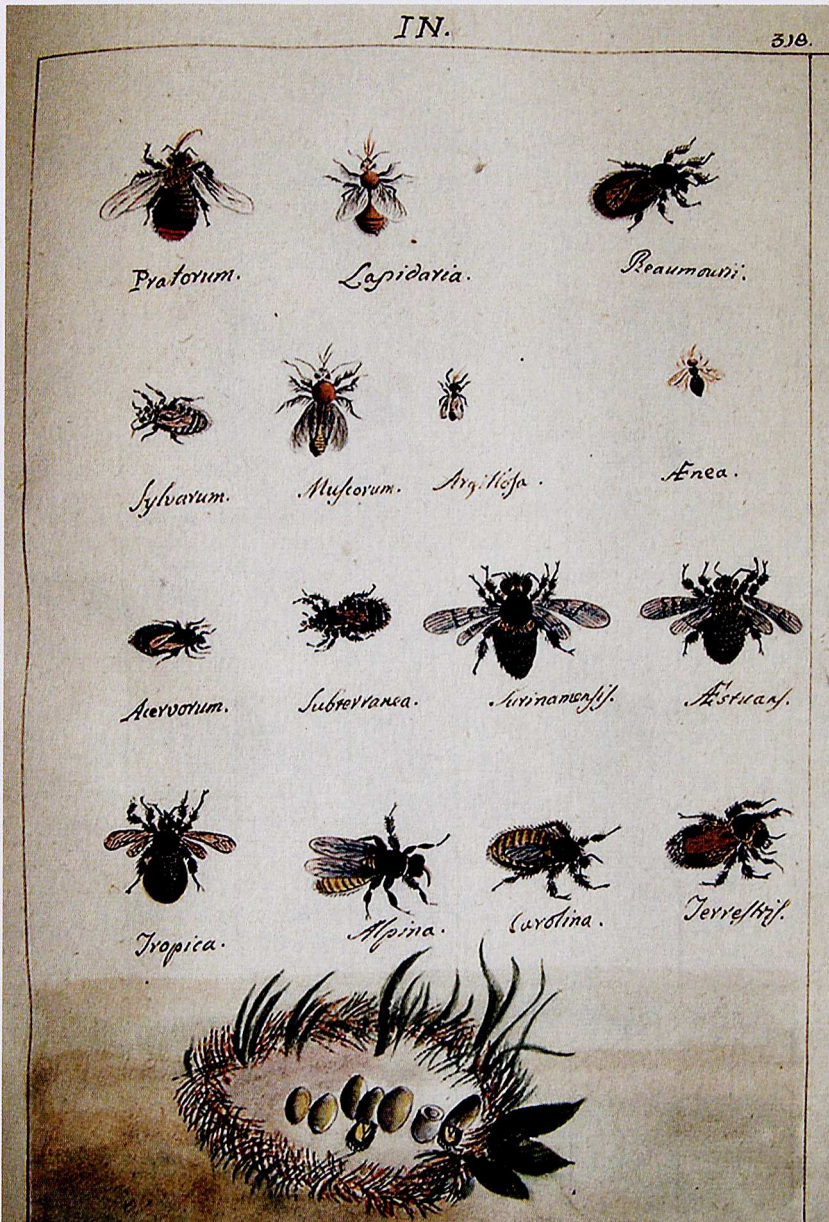 IN.
318.
Pratorum. Lapidaria. Beaumourii.
Sylvarum. Muſcorum. Argilloſa. Ænea.
Acervorum. Subterranea. Surinamenſiſ. Æstuanſ.
Tropica. Alpina. Carolina. Terreſtriſ.